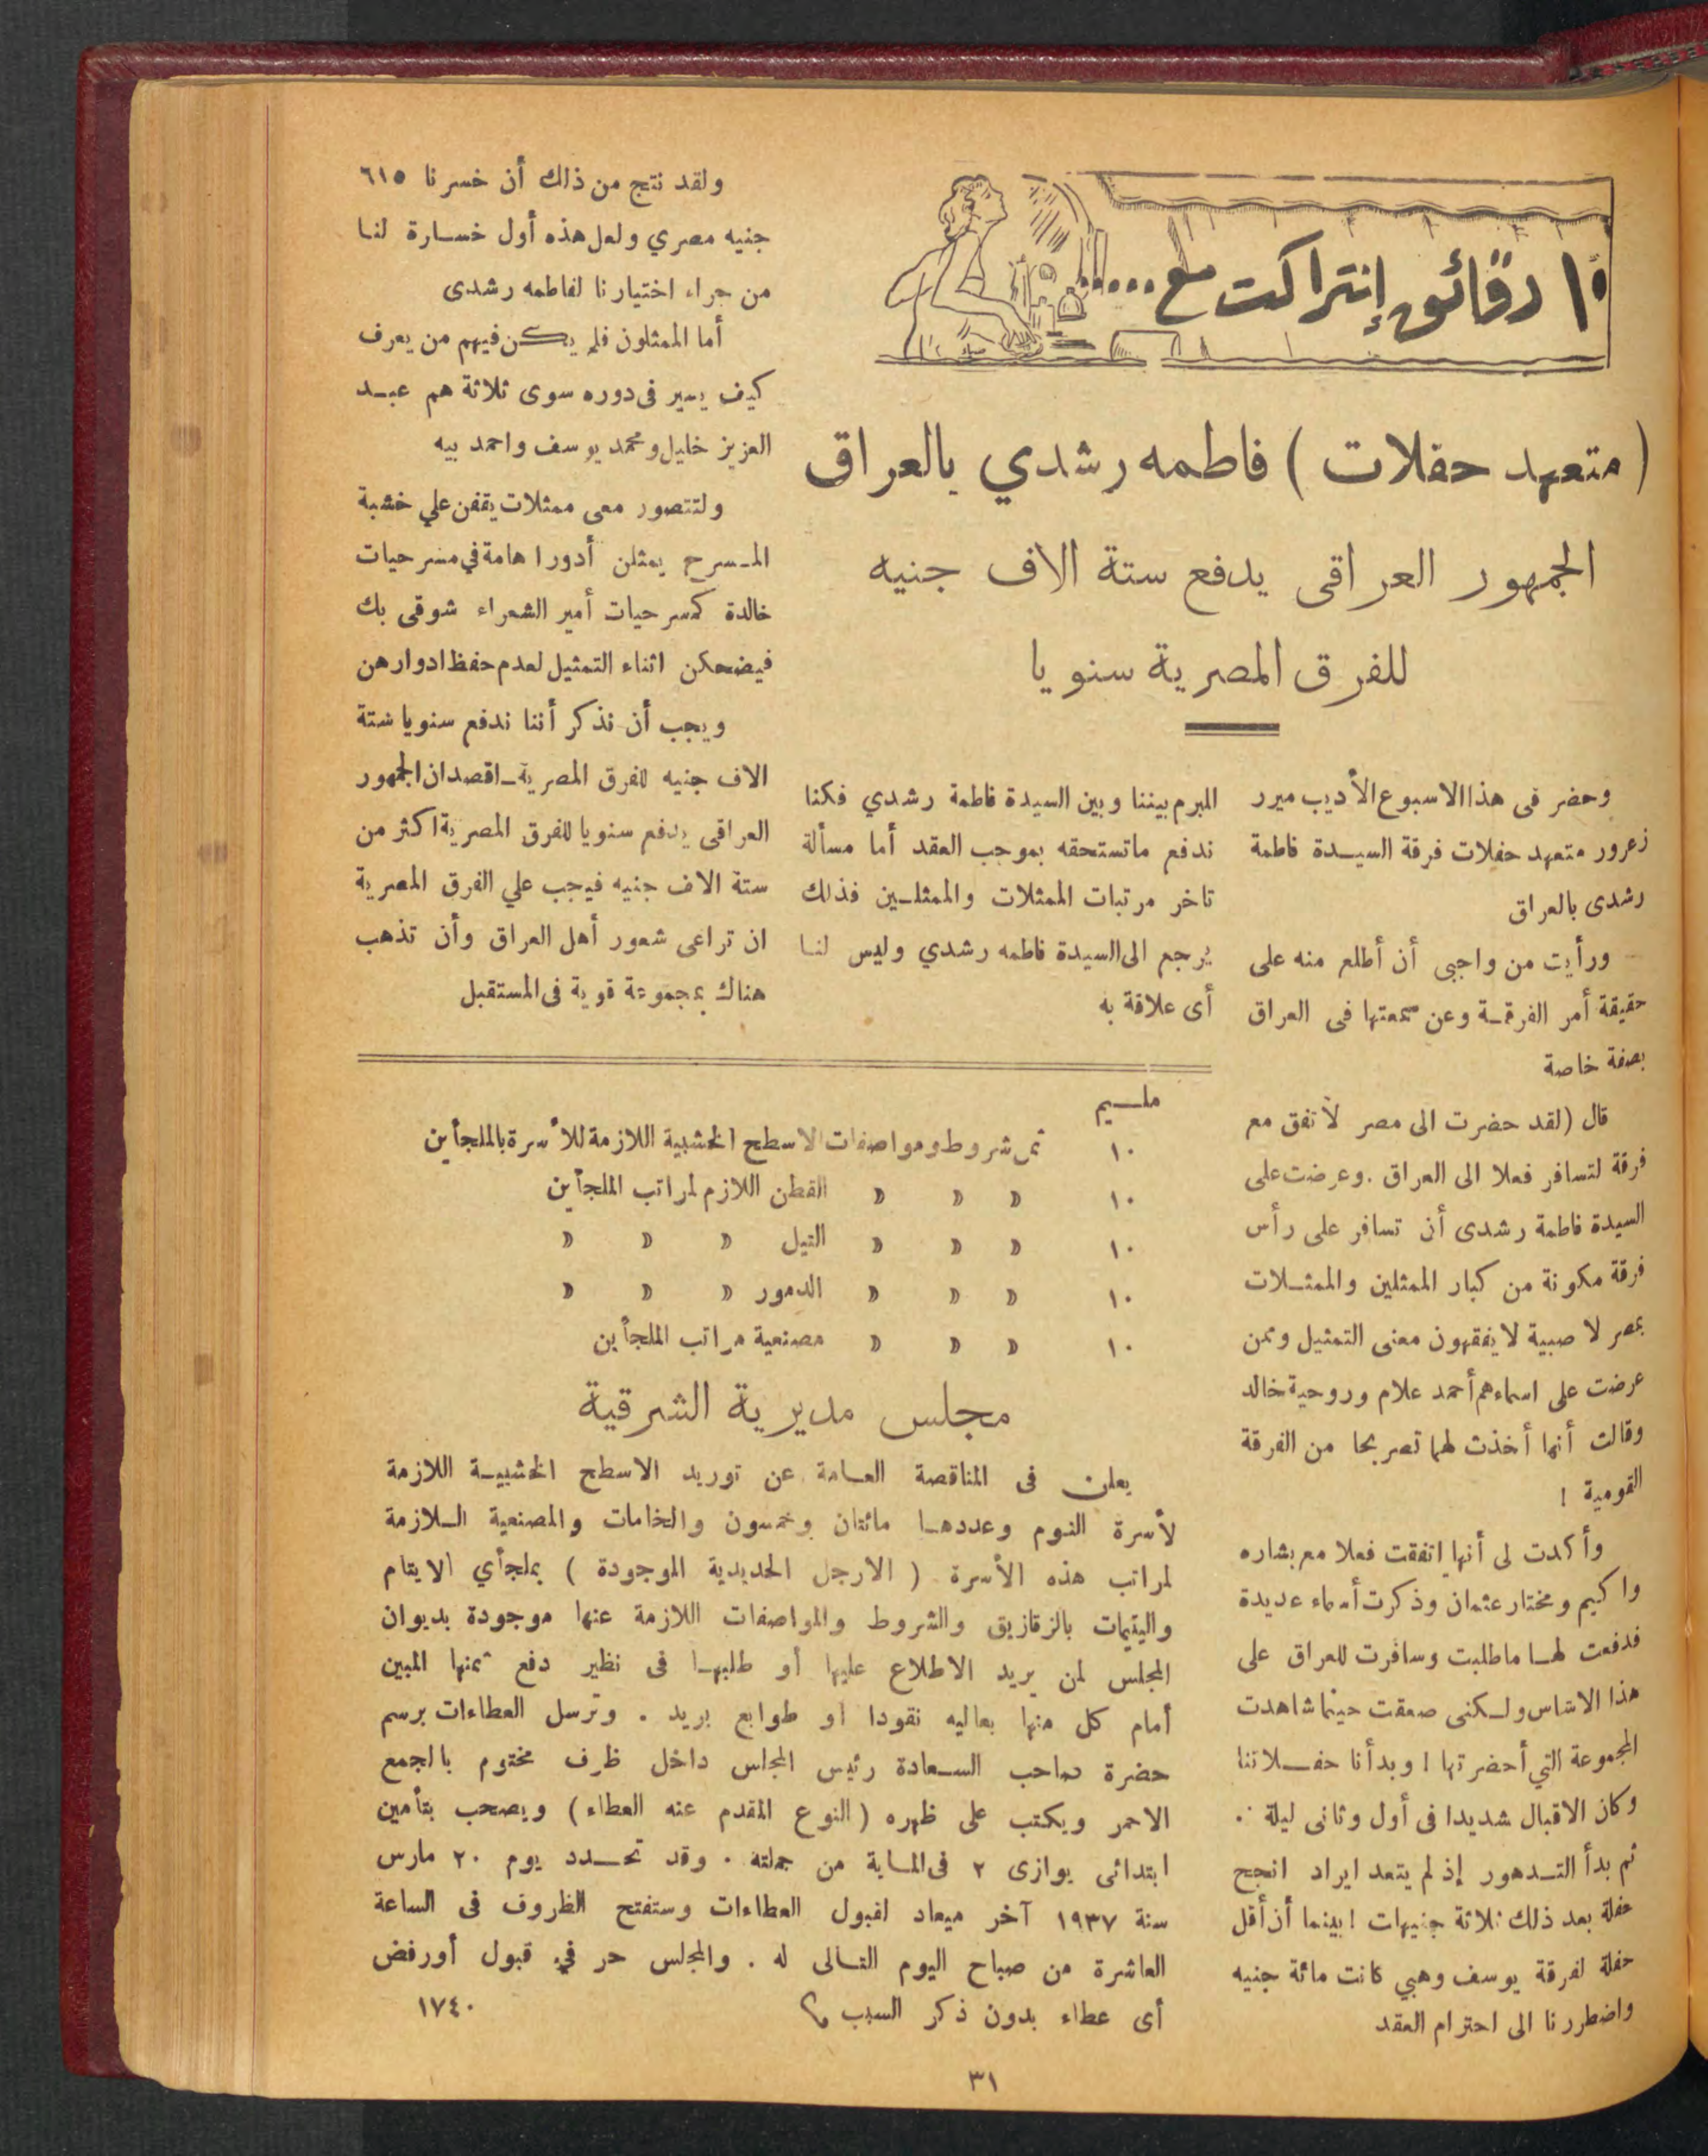 ١٠ دقائق إنتراكت مع .....
( متعهد حفلات ) فاطمه رشدي بالعراق
الجمهور العراقى يدفع ستة الاف جنيه
للفرق المصرية سنويا
وحضر فى هذا الاسبوع الأديب ميرر
زعرور متعهد حفلات فرقة السيدة فاطمة
رشدى بالعراق
ورأيت من واجبى أن أطلع منه على
حقيقة أمر الفرقة وعن سمعتها فى العراق
بصفة خاصة
قال (لقد حضرت الى مصر لأتفق مع
فرقة لتسافر فعلا الى العراق . وعرضت على
السيدة فاطمة رشدى أن تسافر على رأس
فرقة مكونة من كبار الممثلين والممثلات
بمصر لا صبية لا يفقهون معنى التمثيل وممن
عرضت على اسماءهم أحمد علام وروحية خالد
وقالت أنها أخذت لهما تصريحا من الفرقة
القومية !
وأكدت لى أنها اتفقت فعلا مع بشاره
واكيم ومختار عثمان وذكرت أسماء عديدة
فدفعت لها ماطلبت وسافرت للعراق على
هذا الاساس ولكنى صعقت حينما شاهدت
المجموعة التي أحضرتها ! وبدأنا حفلاتنا
وكان الاقبال شديدا فى أول وثانى ليلة .
ثم بدأ التدهور إذ لم يتعد ايراد انجح
حفلة بعد ذلك ثلاثة جنيهات ! بينما أن أقل
حفلة لفرقة يوسف وهبي كانت مائة جنيه
واضطررنا الى احترام العقد
المبرم بيننا وبين السيدة فاطمة رشدي فكنا
ندفع ماتستحقه بموجب العقد أما مسألة
تاخر مرتبات الممثلات والممثلين فذلك
يرجع الى السيدة فاطمه رشدي وليس لنا
أى علاقة به
ولقد نتج من ذلك أن خسرنا ٦١٥
جنيه مصري ولعل هذه أول خسارة لنا
من جراء اختيارنا لفاطمه رشدى
أما الممثلون فلم يكن فيهم من يعرف
كيف يسير فى دوره سوى ثلاثة هم عبد
العزيز خليل ومحمد يوسف واحمد بيه
ولتتصور معى ممثلات يقفن علي خشبة
المسرح يمثلن أدورا هامة في مسرحيات
خالدة كمسرحيات أمير الشعراء شوقى بك
فيضحكن اثناء التمثيل لعدم حفظ ادوارهن
ويجب أن نذكر أننا ندفع سنويا ستة
الاف جنيه للفرق المصرية ـ اقصد ان الجمهور
العراقى يدفع سنويا للفرق المصرية اكثر من
ستة الاف جنيه فيجب علي الفرق المصرية
ان تراعى شعور أهل العراق وأن تذهب
هناك بمجموعة قوية فى المستقبل
مليم
١٠ ثمن شروط ومواصفات الاسطح الخشبية اللازمة للأسرة بالملجأين
١٠ » » » القطن اللازم لمراتب الملجأين
١٠ » » » التيل » » »
١٠ » » » الدمور » » »
١٠ » » » مصنعية مراتب الملجأين
مجلس مديرية الشرقية
يعلن فى المناقصة العامة عن توريد الاسطح الخشبية اللازمة
لأسرة النوم وعددها مائتان وخمسون والخامات والمصنعية اللازمة
لمراتب هذه الأسرة ( الارجل الحديدية الموجودة ) بملجأي الايتام
واليتيمات بالزقازيق والشروط والمواصفات اللازمة عنها موجودة بديوان
المجلس لمن يريد الاطلاع عليها أو طلبها فى نظير دفع ثمنها المبين
أمام كل منها بعاليه نقودا او طوابع بريد . وترسل العطاءات برسم
حضرة صاحب السعادة رئيس المجلس داخل ظرف مختوم بالجمع
الاحمر ويكتب على ظهره ( النوع المقدم عنه العطاء ) ويصحب بتأمين
ابتدائى يوازى ٢ فى الماية من جملته . وقد تحدد يوم ٢٠ مارس
سنة ١٩٣٧ آخر ميعاد لقبول العطاءات وستفتح الظروف فى الساعة
العاشرة من صباح اليوم التالى له . والمجلس حر في قبول أورفض
أى عطاء بدون ذكر السبب ١٧٤٠
٣١